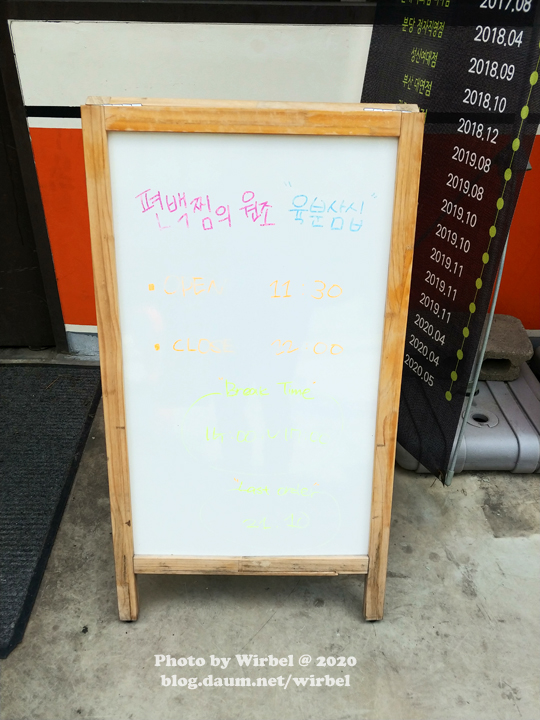 2017.08
분당 정자직영점 2018.04
성신여대점 2018.09
부산 대연점 2018.10
2018.12
2019.08
2019.08
2019.10
2019.10
2019.11
2019.11
2019.11
2020.04
2020.04
2020.05
편백찜의 원조 "육분삼십"
• OPEN 11:30
• CLOSE 22:00
"Break Time"
"Last order"
Photo by Wirbel @ 2020
blog.daum.net/wirbel